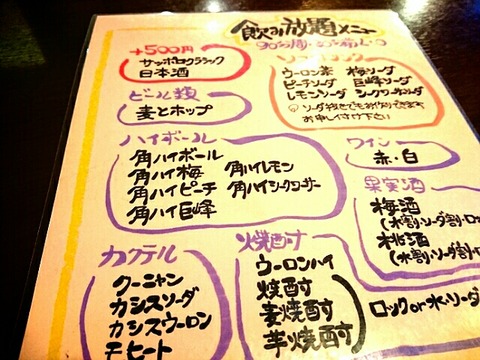 飲み放題メニュー
+500円
サッポロクラシック
日本酒
ビール類
麦とホップ
ハイボール
角ハイボール
角ハイ梅
角ハイピーチ
角ハイ巨峰
角ハイレモン
角ハイシークワーサー
カクテル
クーニャン
カシスソーダ
カシスウーロン
モヒート
ソフトドリンク
ウーロン茶 梅ソーダ
ピーチソーダ 巨峰ソーダ
レモンソーダ シークワーサーソーダ
お申し付け下さい
ワイン
赤・白
果実酒
梅酒
(水割・ソーダ割・ロッ
桃酒
(水割・ソーダ割・
焼酎
ウーロンハイ
焼酎
麦焼酎
芋焼酎
ロック or 水・ソーダ